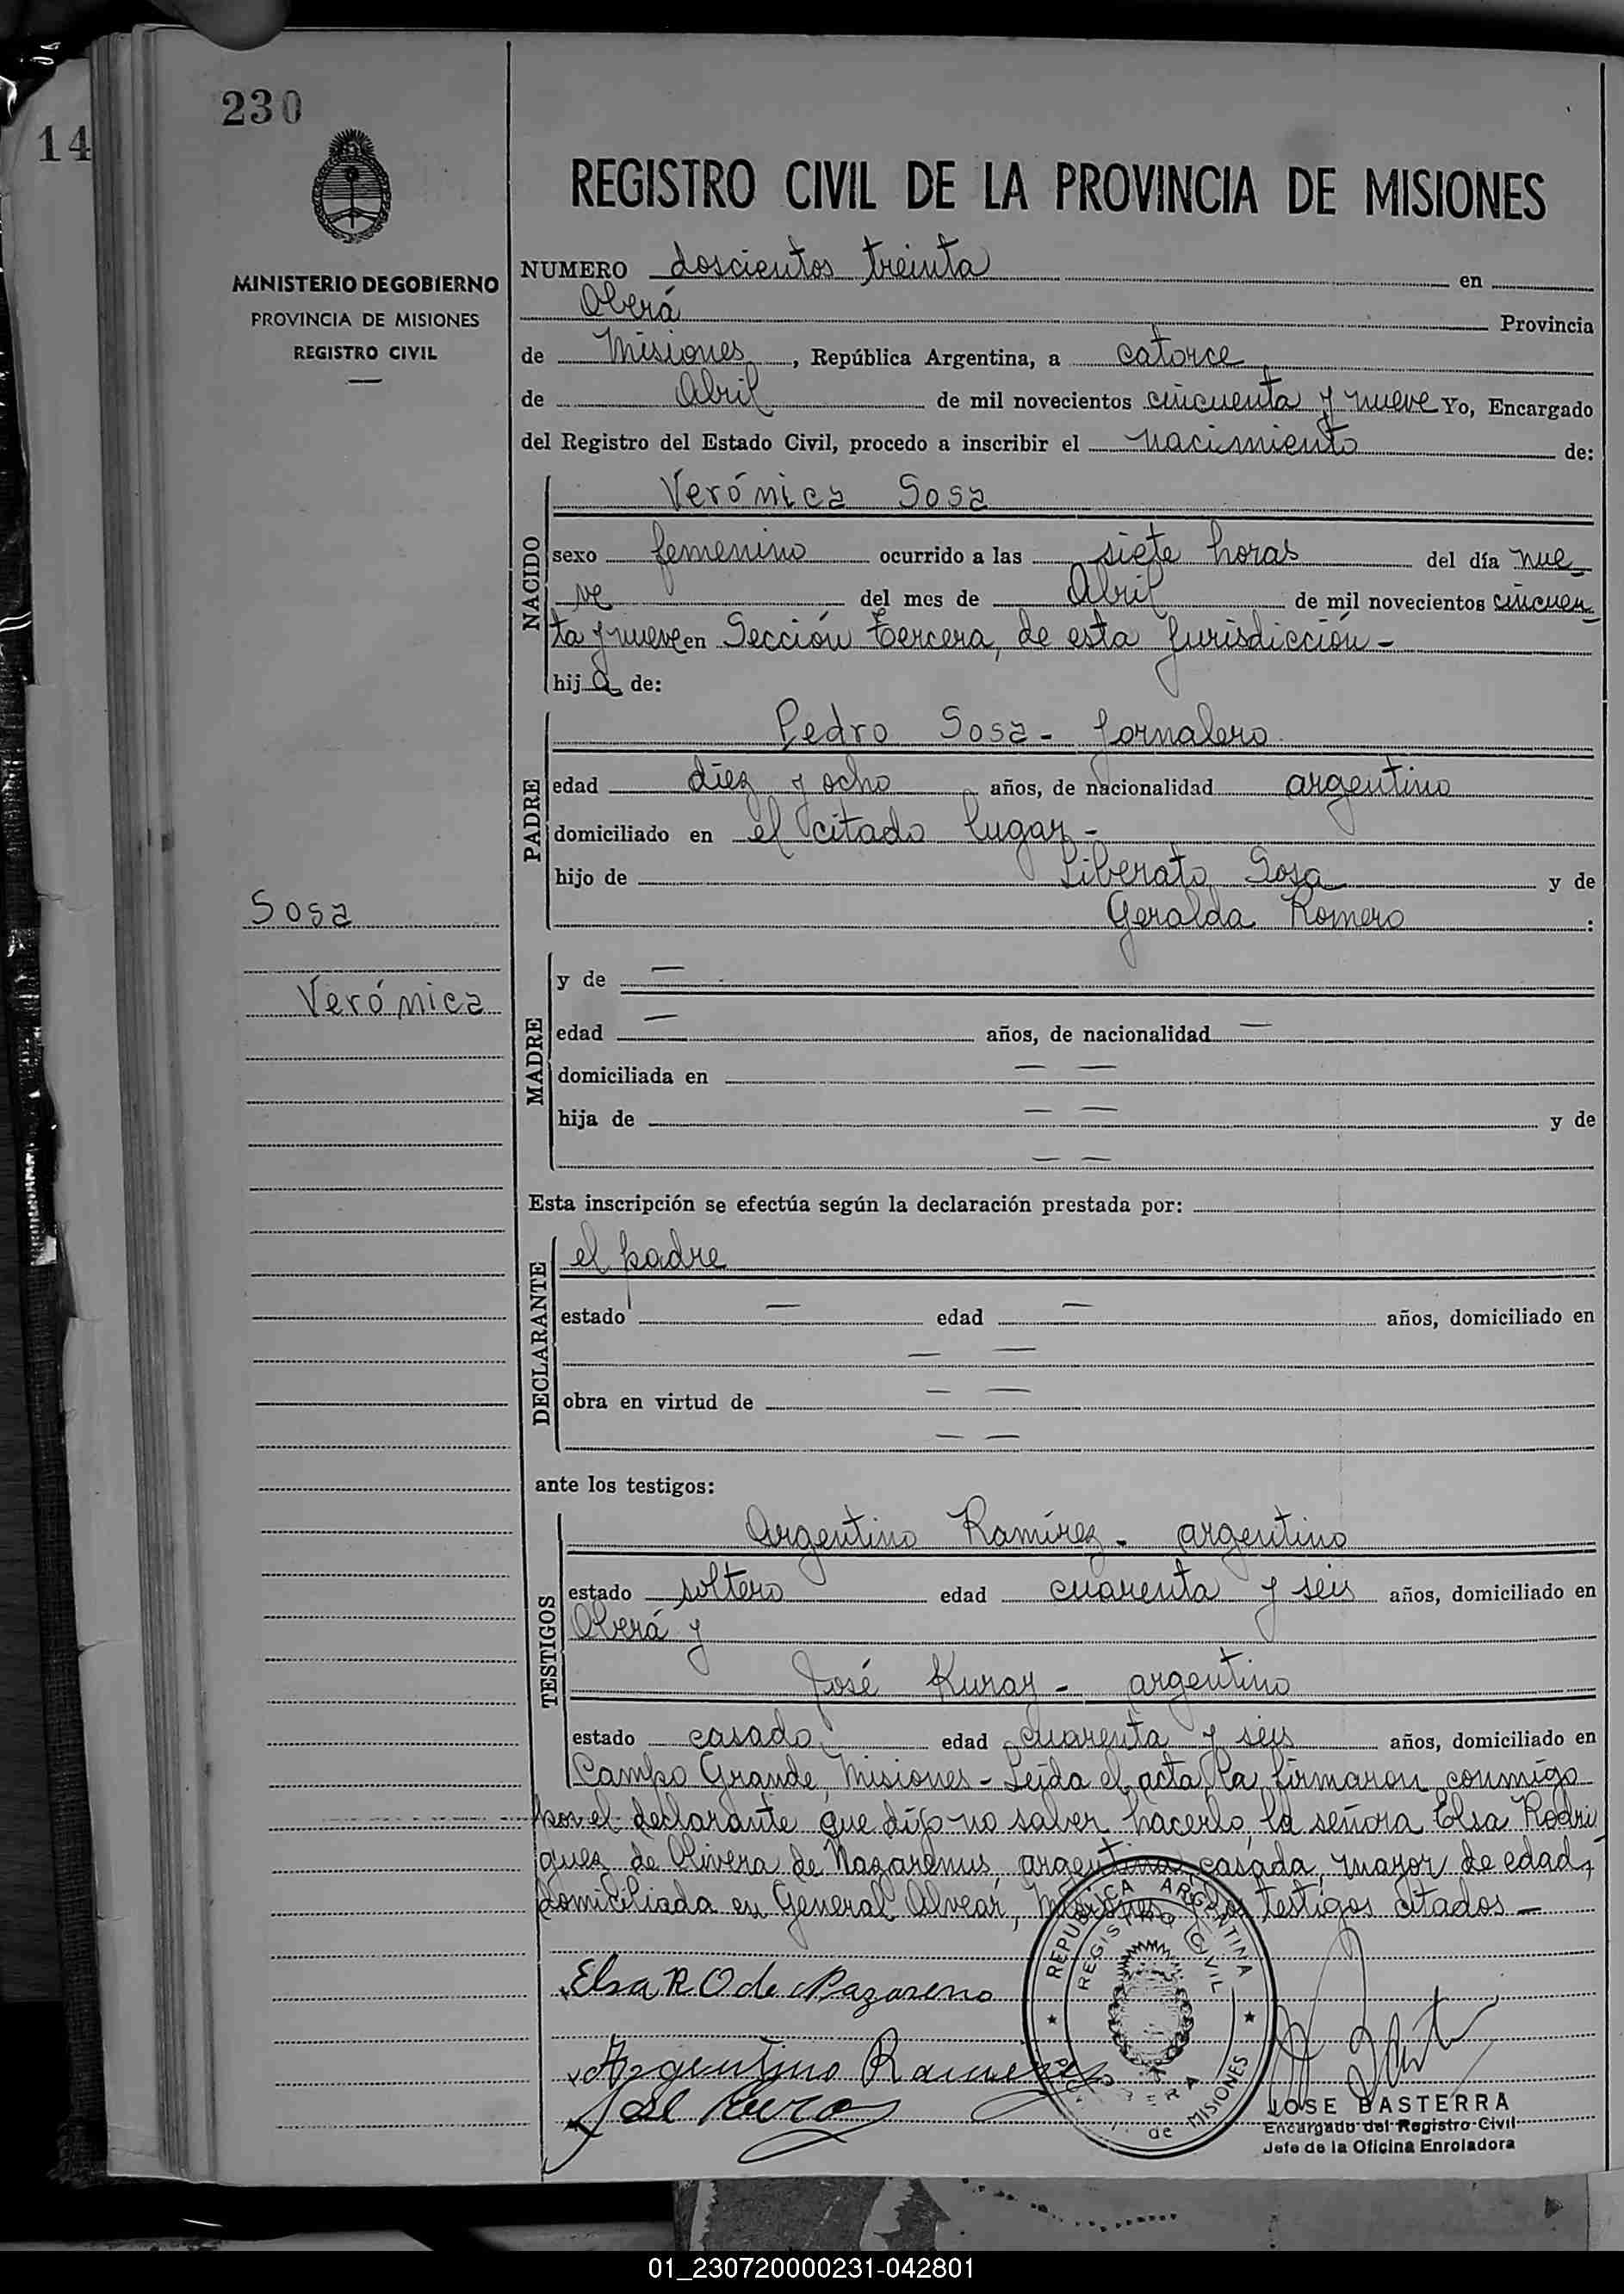 230
14
MINISTERIO DE GOBIERNO
PROVINCIA DE MISIONES
REGISTRO CIVIL
REGISTRO CIVIL DE LA PROVINCIA DE MISIONES
NUMERO doscientos treinta en
Oberá Provincia
de Misiones, República Argentina, a catorce
de Abril de mil novecientos cincuenta y nueve Yo, Encargado
del Registro del Estado Civil, procedo a inscribir el nacimiento de:
NACIDO
Verónica Sosa
sexo femenino ocurrido a las siete horas del día nue
ve del mes de Abril de mil novecientos cincuen
ta y nueve en Sección tercera, de esta Jurisdicción -
hija de:
PADRE
Pedro Sosa - Jornalero
edad diez y ocho años, de nacionalidad argentino
domiciliado en el citado lugar -
hijo de Liberato Sosa y de
Geralda Romero :
Sosa
Verónica
MADRE
y de —
edad — años, de nacionalidad —
domiciliada en — —
hija de — — y de
— —
Esta inscripción se efectúa según la declaración prestada por:
DECLARANTE
el padre
estado — edad — años, domiciliado en
— —
obra en virtud de — —
— —
ante los testigos:
TESTIGOS
Argentino Ramírez - argentino
estado soltero edad cuarenta y seis años, domiciliado en
Oberá y
José Kuray - argentino
estado casado edad cuarenta y seis años, domiciliado en
Campo Grande, Misiones - Leída el acta, la firmaron conmigo
por el declarante que dijo no saber hacerlo, la señora Elsa Rodri
guez de Olivera de Nazarenus, argentina, casada, mayor de edad,
domiciliada en General Alvear, Misiones y los testigos citados -
Elsa R O de Nazareno
Argentino Ramirez
REPUBLICA ARGENTINA
REGISTRO CIVIL
de MISIONES
JOSE BASTERRA
Encargado del Registro Civil
Jefe de la Oficina Enroladora
01_230720000231-042801